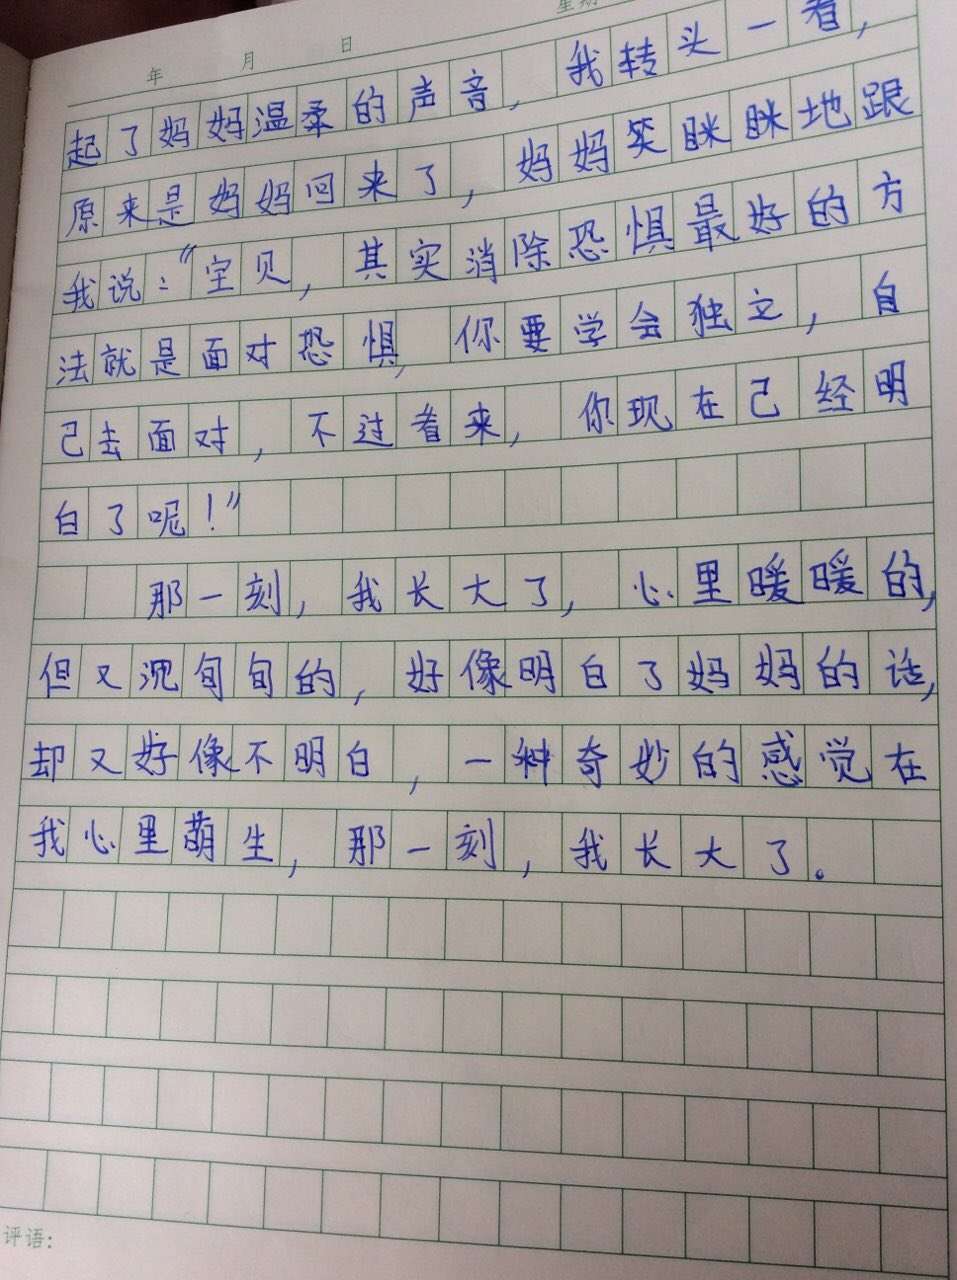 年 月 日 星期
起了妈妈温柔的声音，我转头一看，
原来是妈妈回来了，妈妈笑眯眯地跟
我说：“宝贝，其实消除恐惧最好的方
法就是面对恐惧，你要学会独立，自
己去面对，不过看来，你现在已经明
白了呢！”
那一刻，我长大了，心里暖暖的，
但又沉甸甸的，好像明白了妈妈的话，
却又好像不明白，一种奇妙的感觉在
我心里萌生，那一刻，我长大了。
评语: